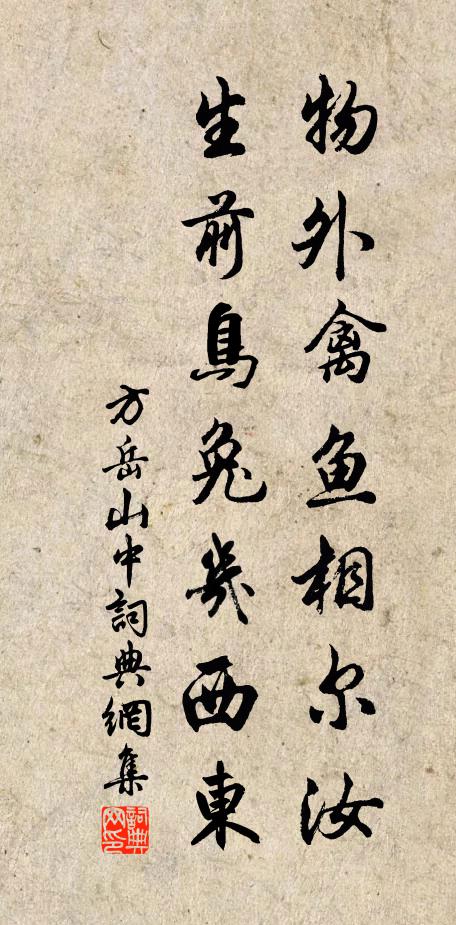 物外禽鱼相尔汝
生前乌兔几西東
方岳山中詞典網集
詞典网印